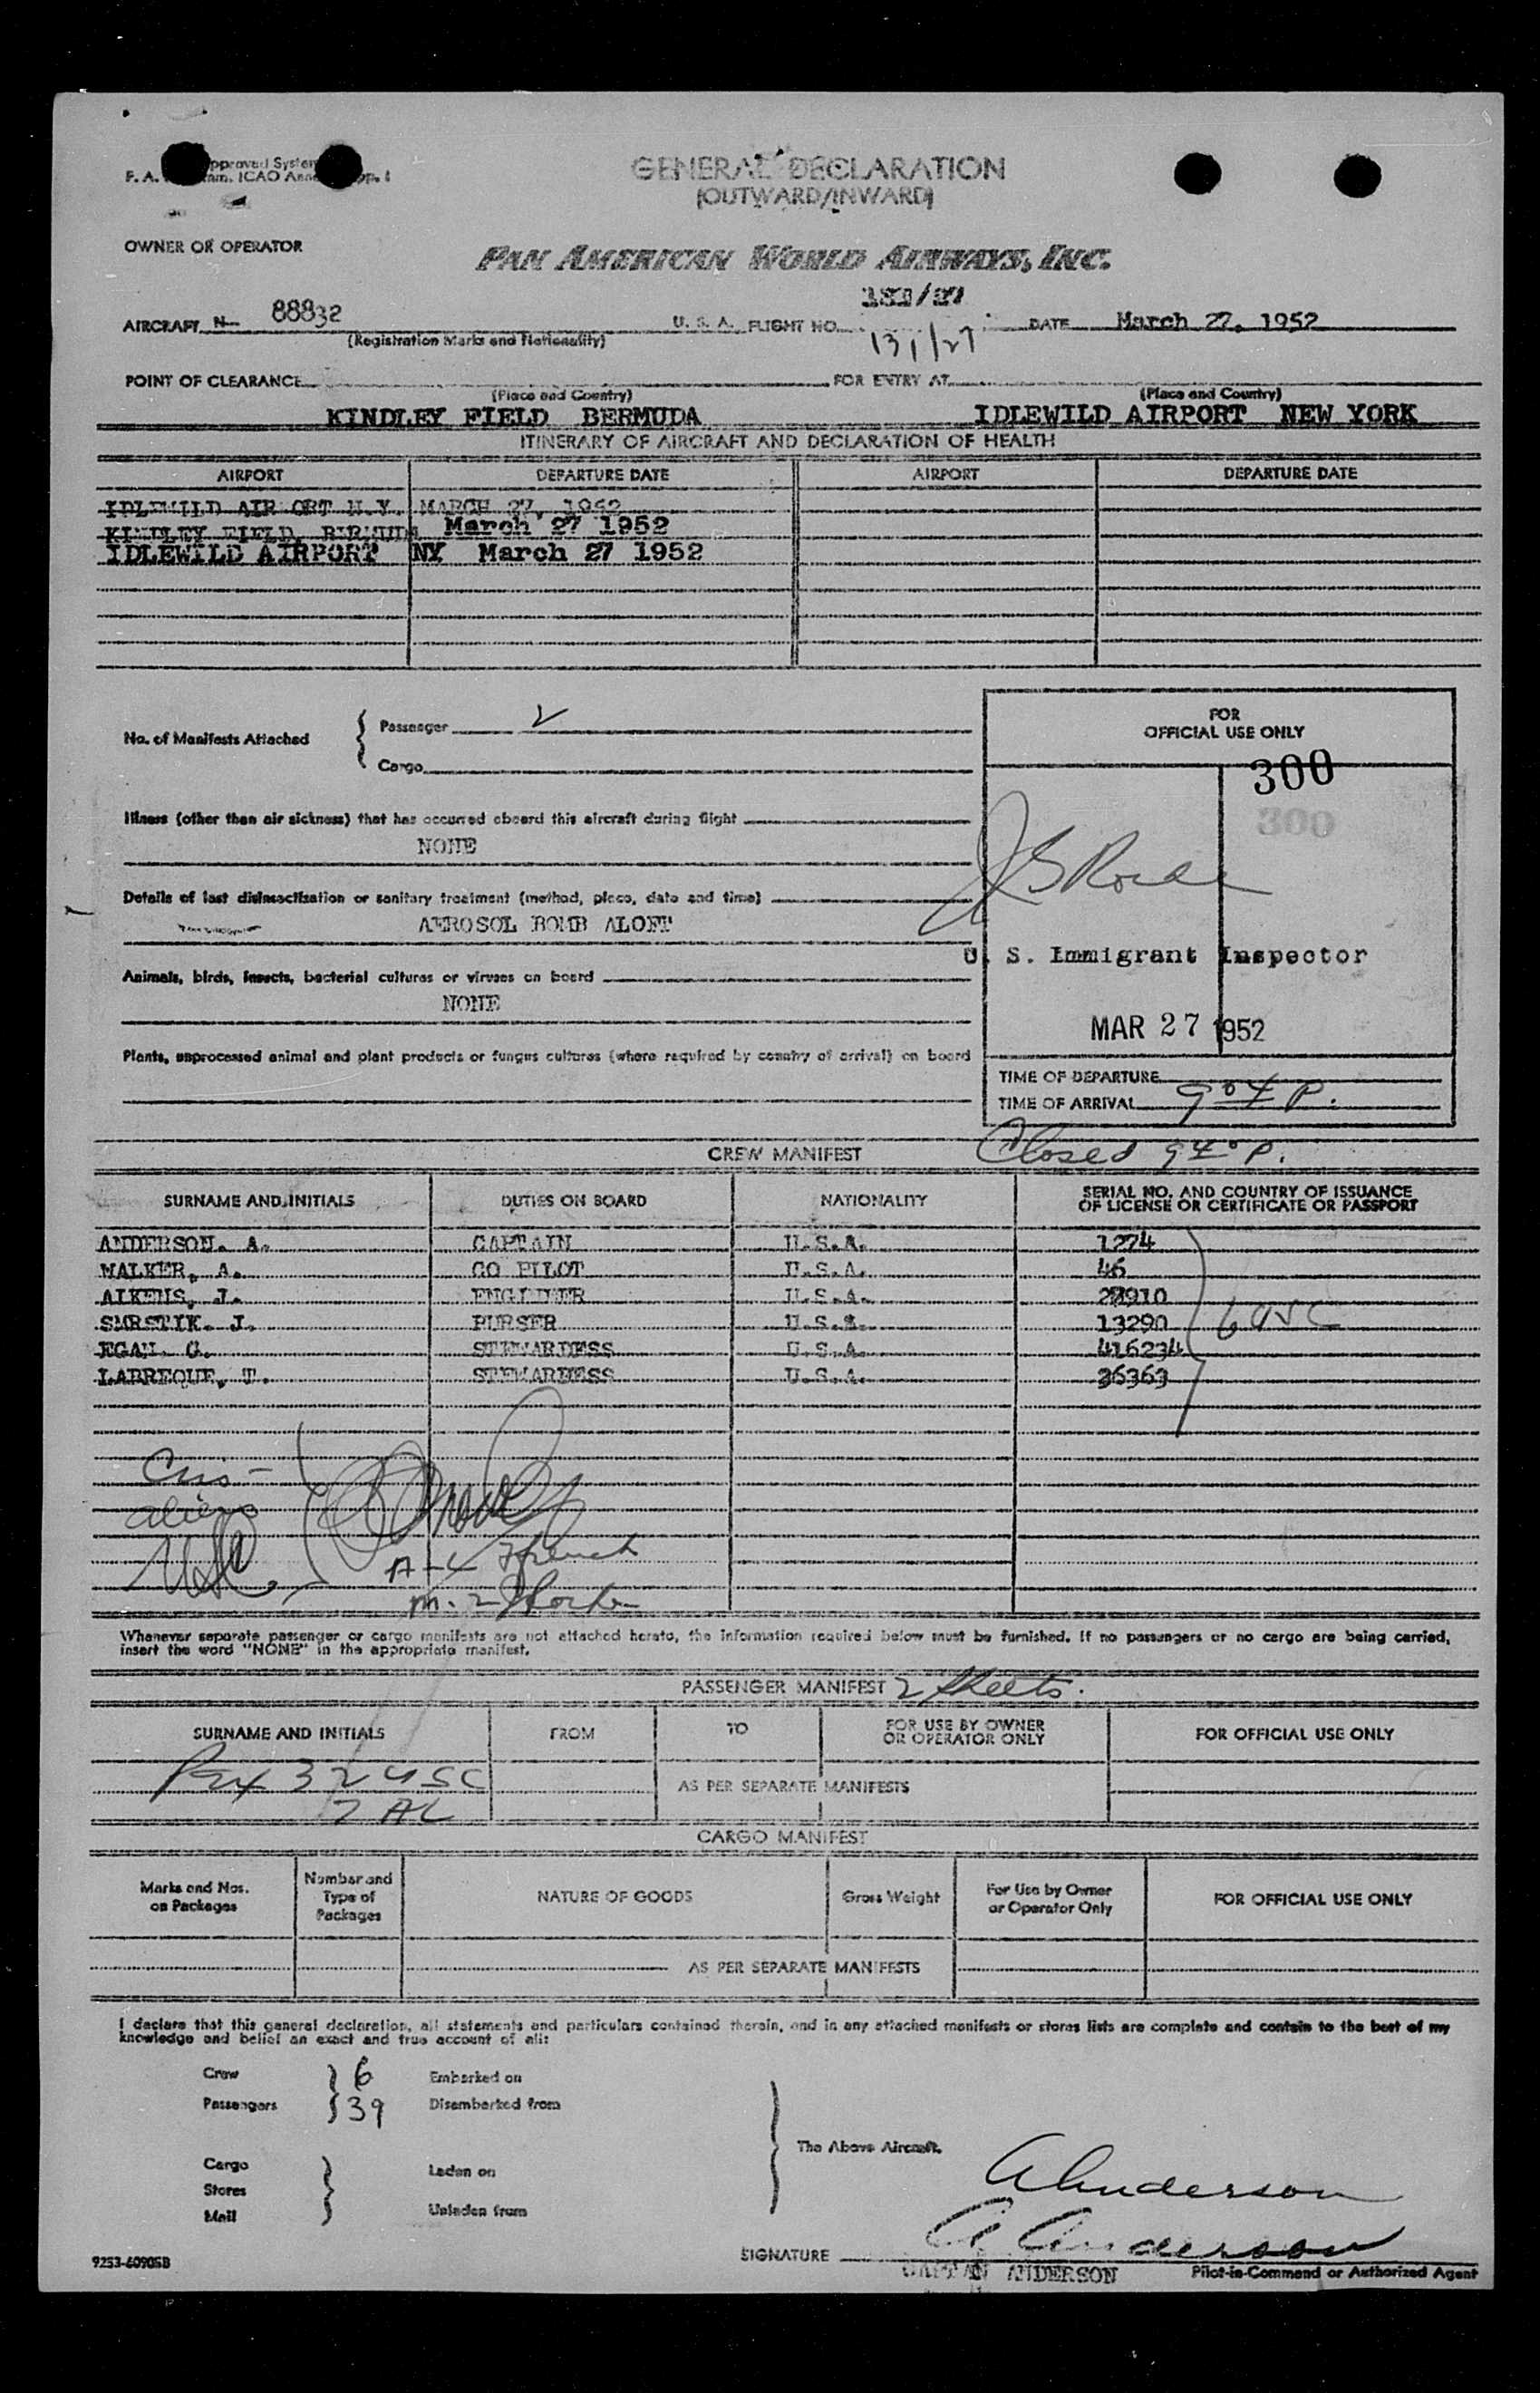 GENERAL DECLARATION
(OUTWARD/INWARD)
OWNER OR OPERATOR
PAN AMERICAN WORLD AIRWAYS, INC.
131/27
AIRCRAFT N- 88832 U. S. A. FLIGHT NO. 131/27 DATE March 27, 1952
(Registration Marks and Nationality)
POINT OF CLEARANCE FOR ENTRY AT
(Place and Country) (Place and Country)
KINDLEY FIELD BERMUDA IDLEWILD AIRPORT NEW YORK
ITINERARY OF AIRCRAFT AND DECLARATION OF HEALTH
AIRPORT DEPARTURE DATE AIRPORT DEPARTURE DATE
IDLEWILD AIRPORT N.Y. MARCH 27, 1952
KINDLEY FIELD, BERMUDA March 27 1952
IDLEWILD AIRPORT NY March 27 1952
No. of Manifests Attached
Passenger 2
Cargo
FOR
OFFICIAL USE ONLY
300
300
Illness (other than air sickness) that has occurred aboard this aircraft during flight
NONE
Details of last disinsectization or sanitary treatment (method, place, date and time)
AEROSOL BOMB ALOFT
U. S. Immigrant Inspector
Animals, birds, insects, bacterial cultures or viruses on board
NONE
MAR 27 1952
Plants, unprocessed animal and plant products or fungus cultures (where required by country of arrival) on board
TIME OF DEPARTURE
TIME OF ARRIVAL 9 04 P.
CREW MANIFEST Closed 9 40 P.
SURNAME AND INITIALS DUTIES ON BOARD NATIONALITY SERIAL NO. AND COUNTRY OF ISSUANCE
OF LICENSE OR CERTIFICATE OR PASSPORT
ANDERSON. A. CAPTAIN U.S.A. 1274
WALKER, A. CO PILOT U.S.A. 46
AIKENS, J. ENGINEER U.S.A. 27910
SMRSTIK. J. PURSER U.S.A. 13290 6 USC
EGAN. G. STEWARDESS U.S.A. 416234
LABREQUE, T. STEWARDESS U.S.A. 36363
aliens
A-
M. 2
Whenever separate passenger or cargo manifests are not attached hereto, the information required below must be furnished. If no passengers or no cargo are being carried,
insert the word "NONE" in the appropriate manifest.
PASSENGER MANIFEST 2 sheets.
SURNAME AND INITIALS FROM TO FOR USE BY OWNER
OR OPERATOR ONLY FOR OFFICIAL USE ONLY
Pax 32 USC
AS PER SEPARATE MANIFESTS
7 AL
CARGO MANIFEST
Marks and Nos.
on Packages
Number and
Type of
Packages
NATURE OF GOODS
Gross Weight
For Use by Owner
or Operator Only
FOR OFFICIAL USE ONLY
AS PER SEPARATE MANIFESTS
I declare that this general declaration, all statements and particulars contained therein, and in any attached manifests or stores lists are complete and contain to the best of my
knowledge and belief an exact and true account of all:
Crew 6 Embarked on
Passengers 39 Disembarked from
The Above Aircraft.
Cargo Laden on
Stores
Mail Unladen from
A Anderson
A Anderson
SIGNATURE
CAPTAIN ANDERSON Pilot-in-Command or Authorized Agent
9253-60905B